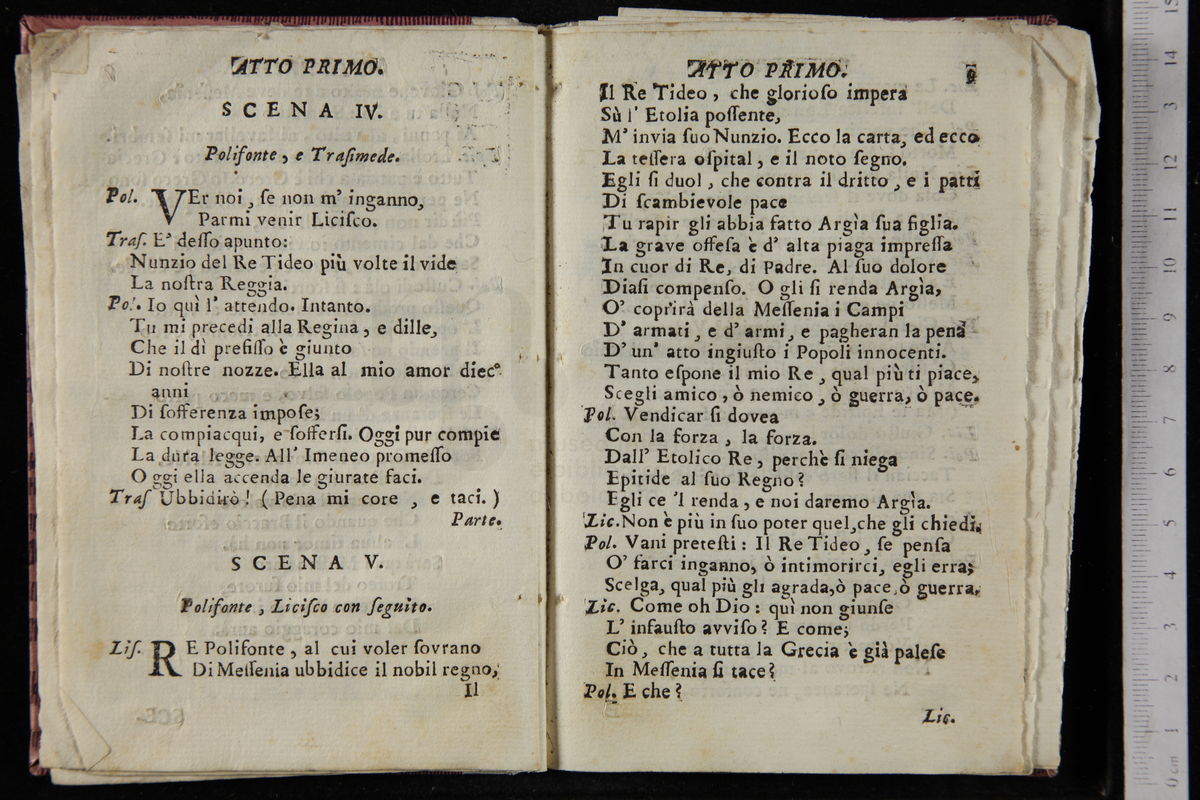 ATTO PRIMO.
SCENA IV.
Polifonte, e Traſimede.
Pol. VEr noi, ſe non m' inganno,
Parmi venir Liciſco.
Traſ. E' deſſo apunto:
Nunzio del Re Tideo più volte il vide
La noſtra Reggia.
Pol. Io quì l' attendo. Intanto.
Tu mi precedi alla Regina, e dille,
Che il dì prefiſſo è giunto
Di noſtre nozze. Ella al mio amor diece
anni
Di ſofferenza impoſe;
La compiacqui, e ſofferſi. Oggi pur compie
La dura legge. All' Imeneo promeſſo
Oggi ella accenda le giurate faci.
Traſ Ubbidirò! (Pena mi core, e taci.)
Parte.
SCENA V.
Polifonte, Liciſco con ſeguito.
Liſ. RE Polifonte, al cui voler ſovrano
Di Meſſenia ubbidice il nobil regno,
Il
ATTO PRIMO. 9
Il Re Tideo, che glorioſo impera
Sù l' Etolia poſſente,
M' invia ſuo Nunzio. Ecco la carta, ed ecco
La teſſera oſpital, e il noto ſegno.
Egli ſi duol, che contra il dritto, e i patti
Di ſcambievole pace
Tu rapir gli abbia fatto Argìa ſua figlia.
La grave offeſa è d' alta piaga impreſſa
In cuor di Re, di Padre. Al ſuo dolore
Diaſi compenſo. O gli ſi renda Argìa,
O' coprirà della Meſſenia i Campi
D' armati, e d' armi, e pagheran la pena
D' un' atto ingiuſto i Popoli innocenti.
Tanto eſpone il mio Re, qual più ti piace,
Scegli amico, ò nemico, ò guerra, ò pace.
Pol. Vendicar ſi dovea
Con la forza, la forza.
Dall' Etolico Re, perchè ſi niega
Epitide al ſuo Regno?
Egli ce 'l renda, e noi daremo Argìa.
Lic. Non è più in ſuo poter quel, che gli chiedi.
Pol. Vani preteſti: Il Re Tideo, ſe penſa
O' farci inganno, ò intimorirci, egli erra;
Scelga, qual più gli agrada, ò pace, ò guerra.
Lic. Come oh Dio: quì non giunſe
L' infauſto avviſo? E come;
Ciò, che a tutta la Grecia è già paleſe
In Meſſenia ſi tace?
Pol. E che?
Lic.